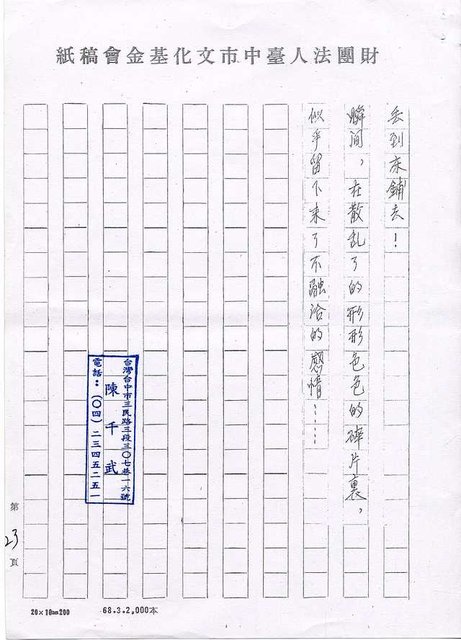 財團法人臺中市文化基金會稿紙
丢到床鋪去!
瞬间,在散乱了的形形色色的碎片裏,
似乎留下来了不融洽的感情……
台灣台中市三民路三段三〇七巷一六號
陳千武
電話:(〇四)二三四五二五一
第23頁
20×10=200
68.3.2,000本